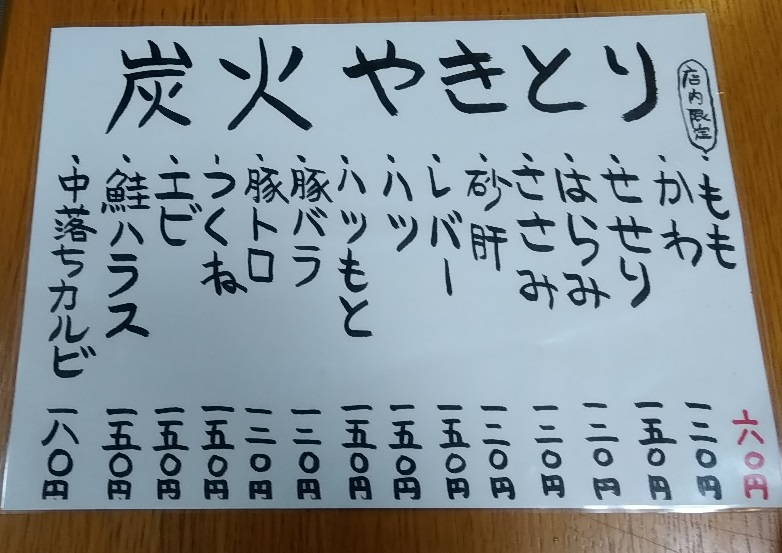 炭火やきとり
店内限定
・もも 六〇円
・かわ 一二〇円
・せせり 一五〇円
・はらみ 一二〇円
・ささみ 一二〇円
・砂肝 一二〇円
・レバー 一五〇円
・ハツ 一五〇円
・ハツもと 一五〇円
・豚バラ 一二〇円
・豚トロ 一二〇円
・つくね 一五〇円
・エビ 一五〇円
・鮭ハラス 一五〇円
・中落ちカルビ 一八〇円